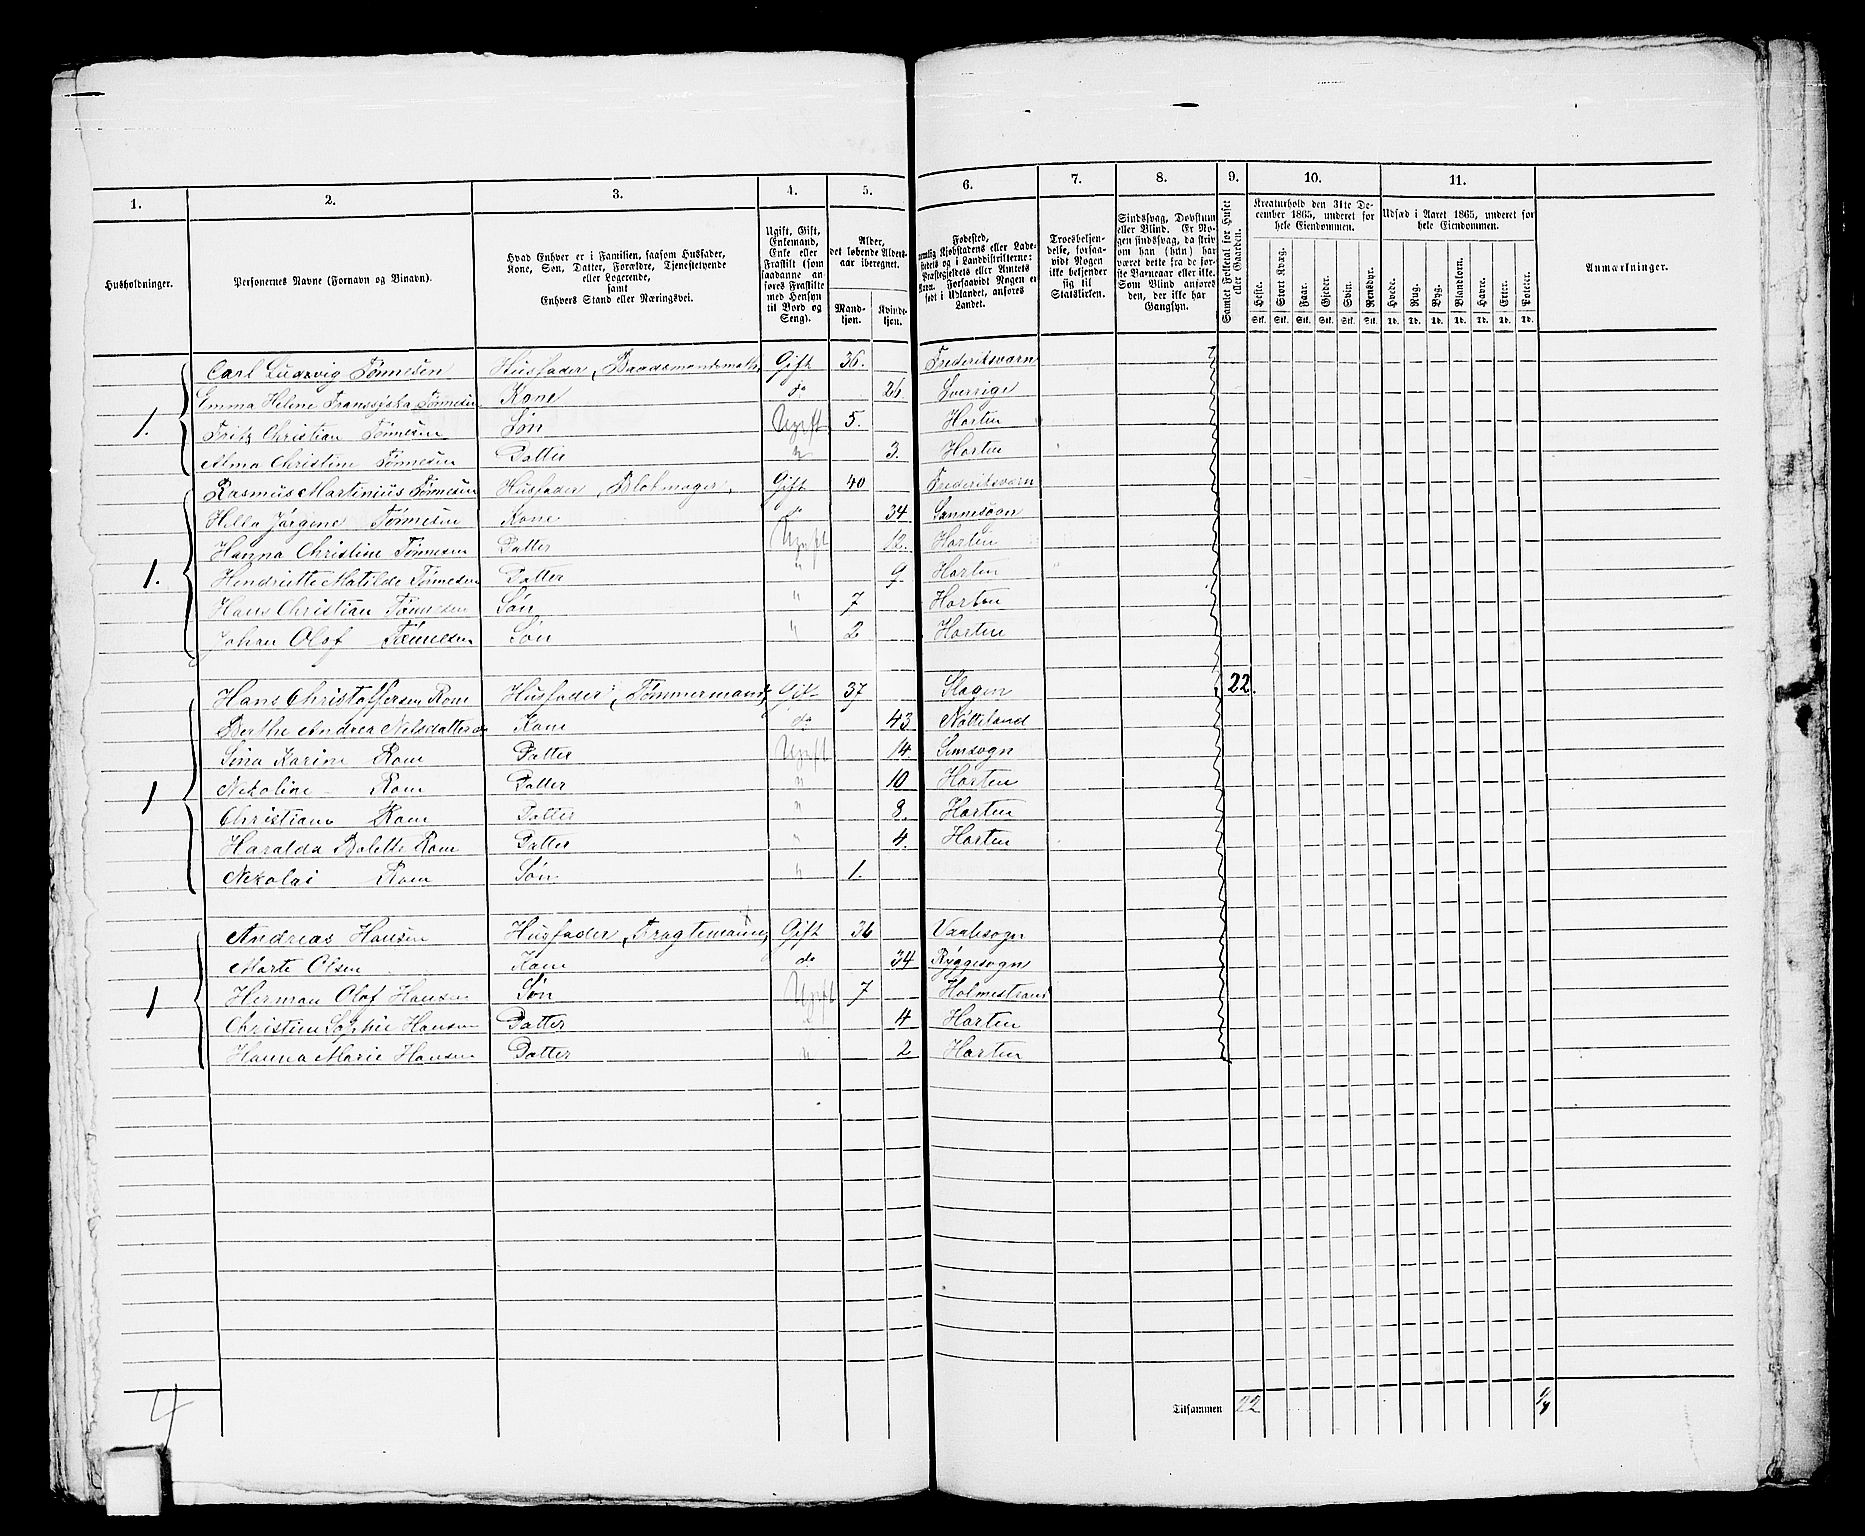 1. 2. 3. 4. 5. 6. 7. 8. 9. 10. 11.
Husholdninger.
Personernes Navne (Fornavn og Binavn).
Hvad Enhver er i Familien, saasom Husfader,
Kone, Søn, Datter, Forældre, Tjenestetyende
eller Logerende,
samt
Enhvers Stand eller Næringsvei.
Ugift, Gift,
Enkemand,
Enke eller
Fraskilt (som
saadanne an-
føres Fraskilte
med Hensyn
til Bord og
Seng).
Alder,
det løbende Alders-
aar iberegnet.
Mand-
kjøn.
Kvinde-
kjøn.
Fødested,
nemlig Kjøbstadens eller Lade-
stedets og i Landdistrikterne:
Præstegjeldets eller Amtets
Navn. Forsaavidt Nogen er
født i Udlandet, anføres
Landet.
Troesbekjen-
delse, forsaa-
vidt Nogen
ikke bekjender
sig til
Statskirken.
Sindssvag, Døvstum
eller Blind. Er No-
gen sindssvag, da skriv
om han (hun) har
været dette fra de før-
ste Barneaar eller ikke.
Som Blind anføres
den, der ikke har
Gangsyn.
Samlet Folketal for Huset
eller Gaarden.
Kreaturhold den 31te De-
cember 1865, underet for
hele Eiendommen.
Heste. Stort Kvæg. Faar. Gjeder. Svin. Rensdyr.
Stk. Stk. Stk. Stk. Stk. Stk.
Udsæd i Aaret 1865, underet for
hele Eiendommen.
Hvede. Rug. Byg. Blandkorn. Havre. Erter. Poteter.
Td. Td. Td. Td. Td. Td. Td.
Anmærkninger.
Carl Ludsvig Tönnesen Husfader, Gift 36. Frederiksværn
Emma Helene Tönnesen Kone do 26 Sverrige
1. Fritz Christian Tönnesen Søn Ugift 5. Horten
Alma Christine Tönnesen Datter " 3. Horten
Rasmus Martinius Tönnesen Husfader, Blokmager, Gift 40 Frederiksværn
Hella Jørgene Tönnesen Kone do 34
Hanna Christine Tönnesen Datter Ugift 12. Horten
1. Hendriette Matilde Tönnesen Datter " 9. Horten
Hans Christian Tönnesen Søn " 7 Horten
Johan Olof Tönnesen Søn " 2 Horten
Hans Christoffersen Rom Husfader, Tömmermand, Gift 37 Slagen 22.
Berthe Andrea Nelsdatter Kone do 43 Nötteland
Sina Karine Rom Datter Ugift 14 Semsogn
1 Nekoline Rom Datter " 10 Horten
Christiane Rom Datter " 8. Horten
Haralda Bolette Rom Datter " 4. Horten
Nekolai Rom Søn " 1.
Andreas Hansen Husfader, Dragtemand, Gift 36 Vaalesogn
Marte Olsen Kone do 34 Ryggesogn
1 Herman Olof Hansen Søn Ugift 7 Holmestrand
Christien Sophie Hansen Datter 4 Horten
Hanna Marie Hansen Datter " 2 Horten
4 Tilsammen 22